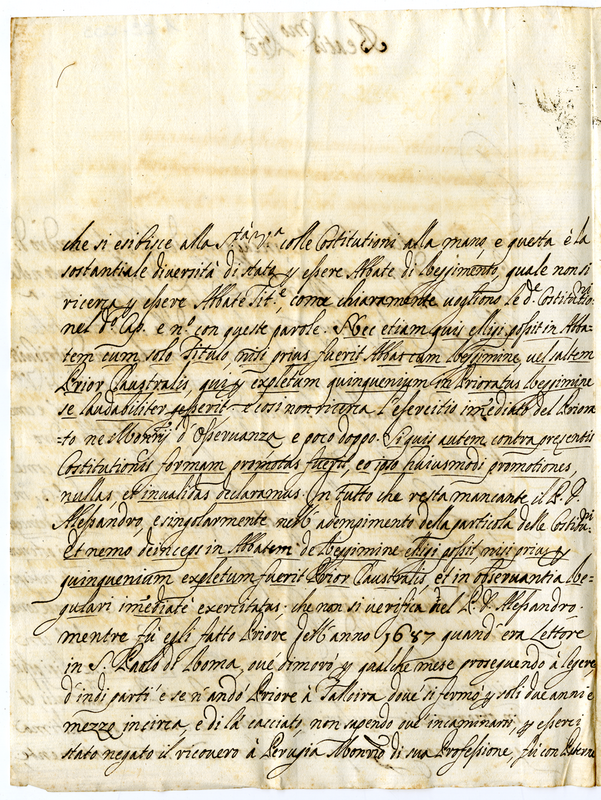 che si esibisce alla S.tà V.a colle Costitutioni alla mano, e questa è la
sostantiale diversità di stato, p essere Abbate di Reggimento, quale non si
ricerca p essere Abbate Tit.e, come chiaramente vogliono le d.e Costitutio:ni
nel d.o Cap. e n.o con queste parole. Nec etiam quis elligi possit in Abba-
tem cum solo Titulo, nisi prius fuerit Abbas cum Regimine, vel saltem
Prior Claustralis, qui p expletum quinquenium in Prioratus Regimine
se laudabiliter gesserit. e così non ricerca l'esercitio imediato del Priora
=to ne Monrij d'Osservanza, e poco doppo. Siquis autem contra presentis
Costitutionis formam promotus fuerit, eo ipso huiusmodi promotiones,
nullas et invalidas declaramus. In tutto che resta mancante il P. D.
Alessandro, e singolarmente nell' adempimento della particola delle Costitu:ni
Et nemo deinceps in Abbatem de Regimine elligi possit, nisi prius p
quinquenium expletum fuerit Prior Claustralis, et in observantia Re=
gulari imediate exercitatus. che non si verifica del P. D. Alessandro.
mentre fù egli fatto Priore dell' anno 1687 quand' era Lettore
in S. Paolo di Roma, ove dimorò p qualche mese proseguendo à legere,
d'indi partì e se n'andò Priore à Talloira dove si fermò p soli due anni e
mezzo incirca, e di là cacciato, non sapendo ove incaminarsi, p esserci
stato negato il ricovero à Perugia Monrio di sua Professione, fù con